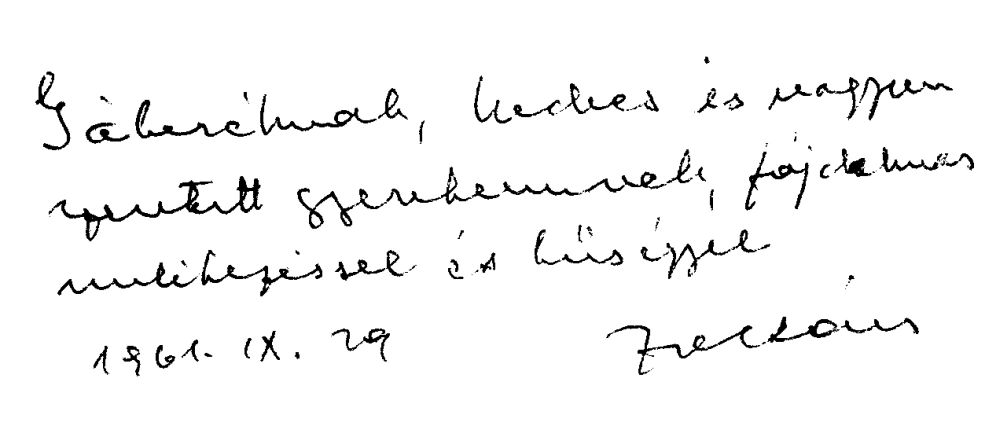 Gáboréknak, kedves és nagyon
szeretett gyerekeimnek, fájdalmas
emlékezéssel és hűséggel
1961. IX. 29
Zoltán